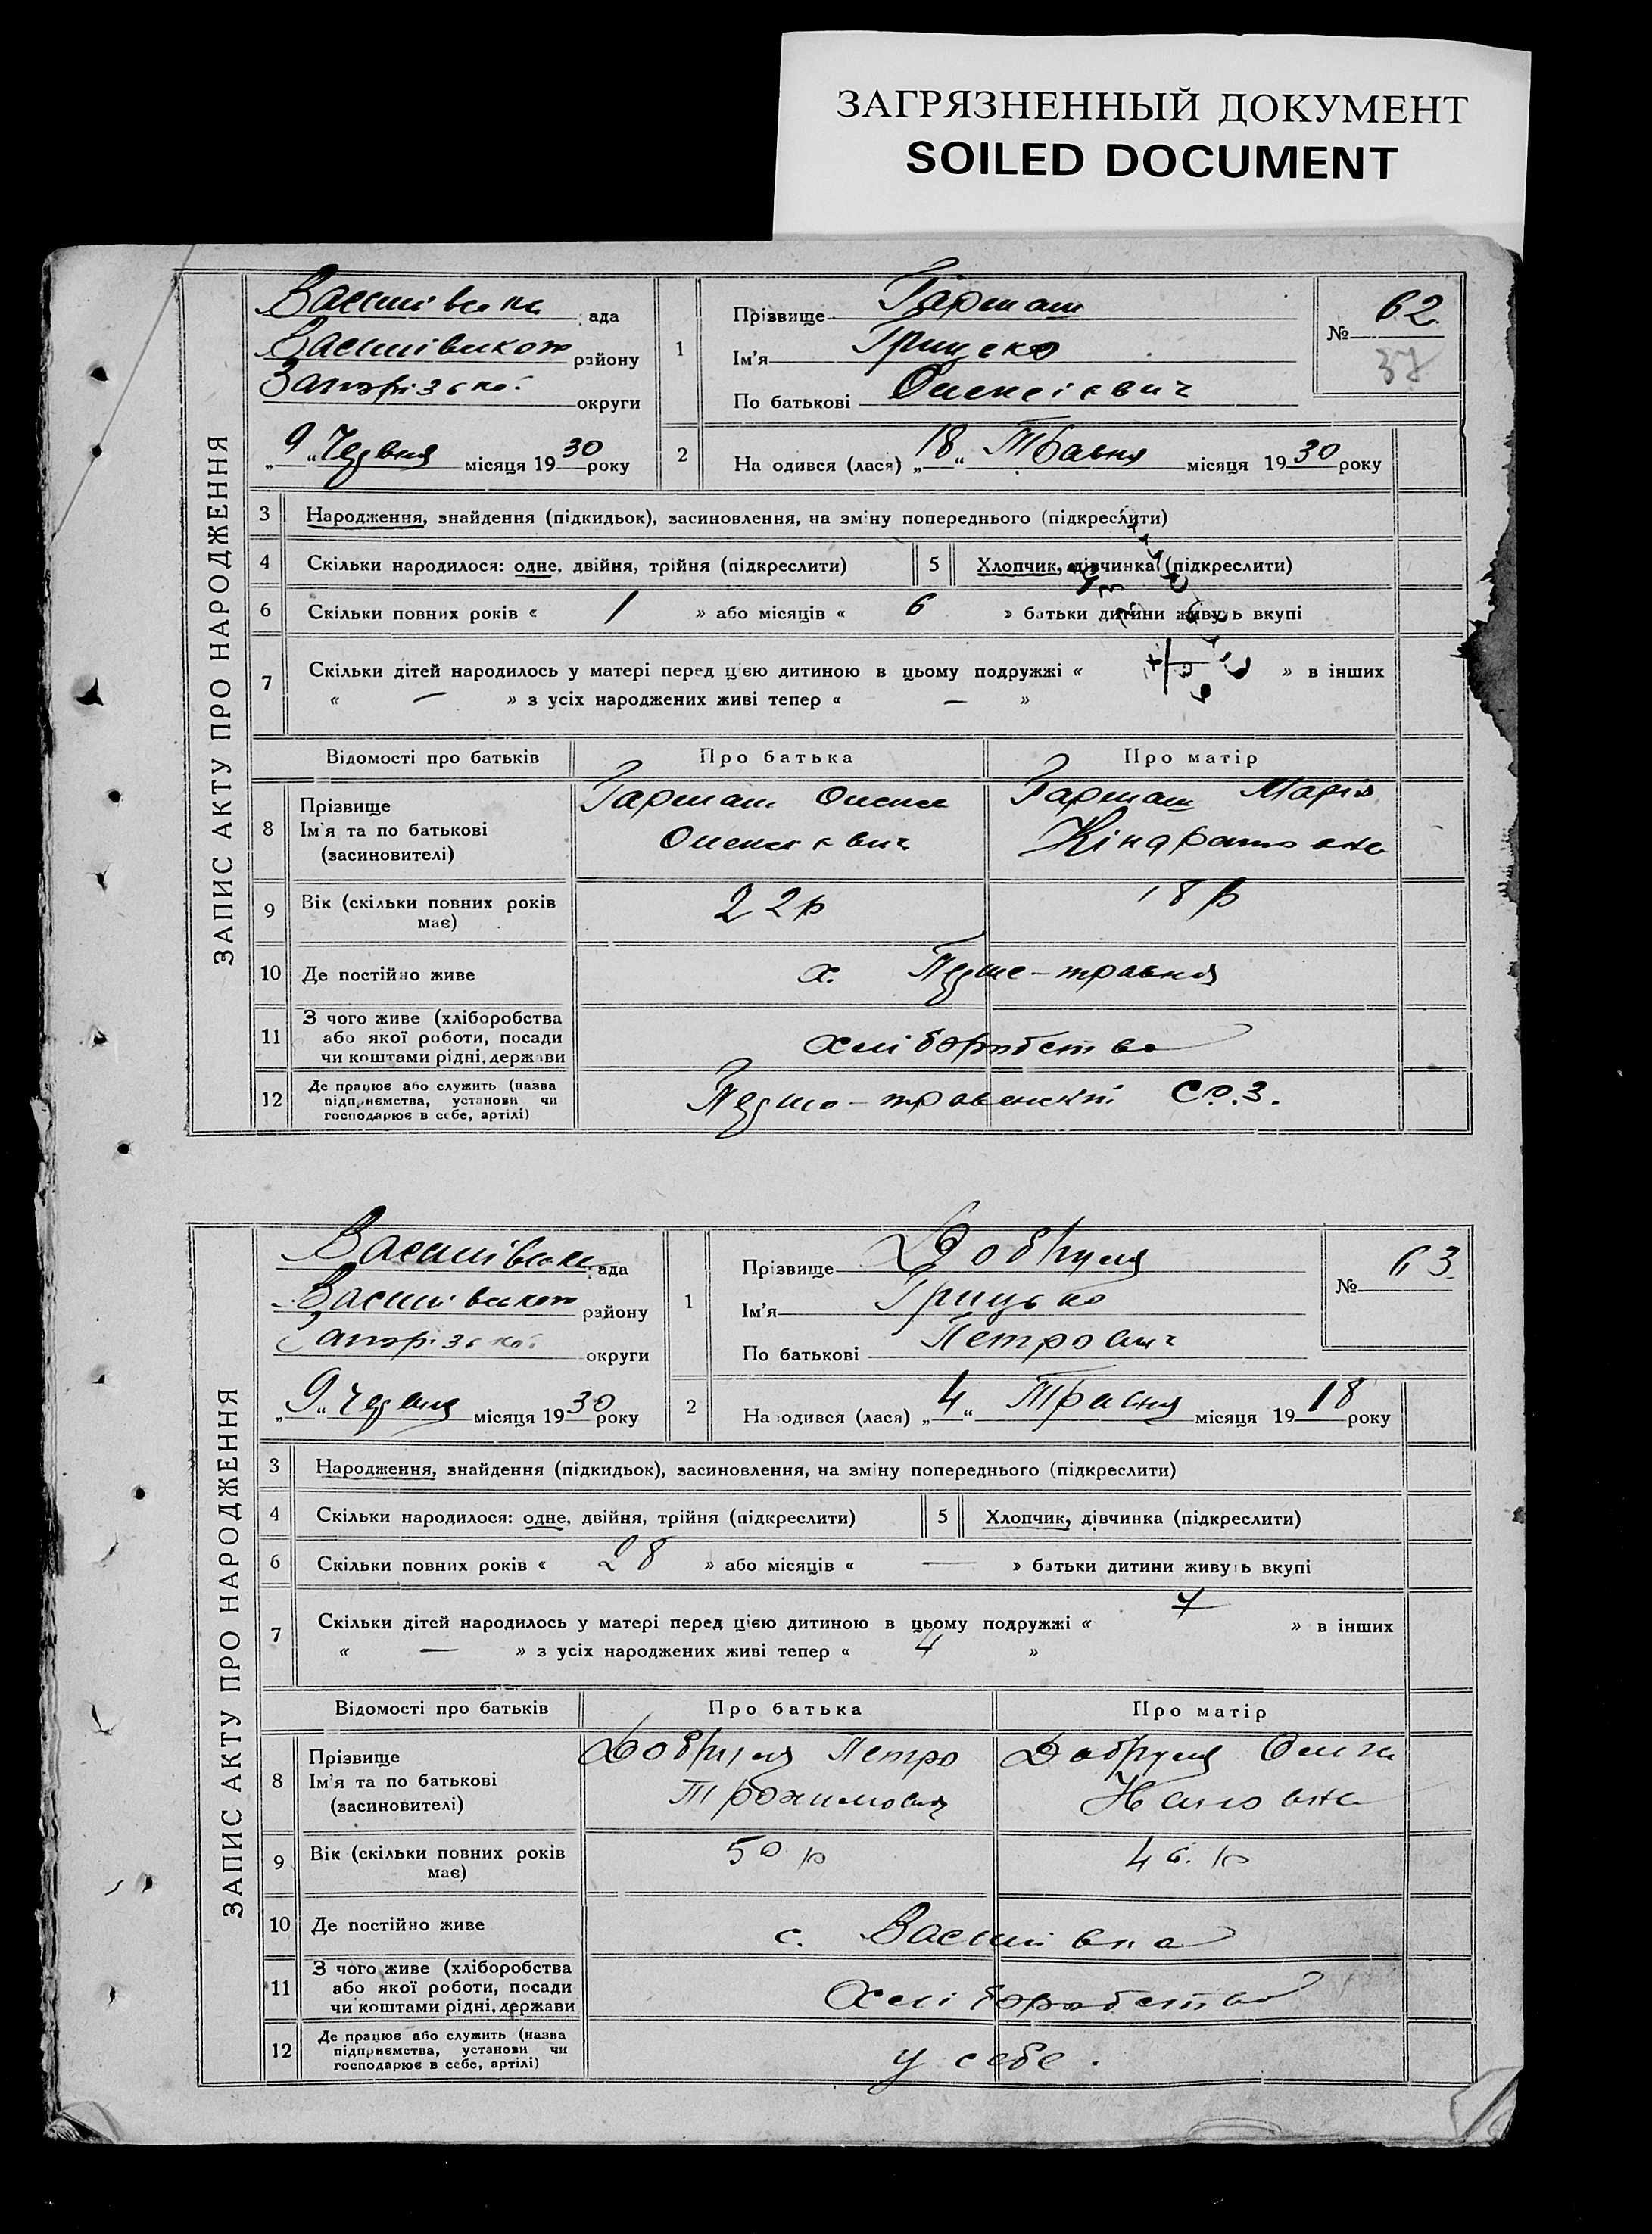 ЗАГРЯЗНЕННЫЙ ДОКУМЕНТ
SOILED DOCUMENT
ЗАПИС АКТУ ПРО НАРОДЖЕННЯ
Василівська ада
Василівського району
Запорізької округи
„9“ Червня місяця 1930 року
1
Прізвище Гармаш
Ім'я Грицько
По батькові Олексієвич
№ 62
37
2
На одився (лася) „18“ Травня місяця 1930 року
3 Народження, знайдення (підкидьок), засиновлення, на зміну попереднього (підкреслити)
4 Скільки народилося: одне, двійня, трійня (підкреслити) 5 Хлопчик, дівчинка (підкреслити)
6 Скільки повних років « 1 » або місяців « 6 » батьки дитини живуть вкупі
7 Скільки дітей народилось у матері перед цією дитиною в цьому подружжі « » в інших
« — » з усіх народжених живі тепер « — »
Відомості про батьків Про батька Про матір
8 Прізвище
Ім'я та по батькові
(засиновителі)
Гармаш Олекса
Олексієвич
Гармаш Марія
Кіндратовна
9 Вік (скільки повних років
має)
22 р 18 р
10 Де постійно живе х. Перше-травня
11 З чого живе (хліборобства
або якої роботи, посади
чи коштами рідні, держави
хліборобство
12 Де працює або служить (назва
підприємства, установи чи
господарює в себе, артілі)
Першо-травенский С.О.З.
ЗАПИС АКТУ ПРО НАРОДЖЕННЯ
Василівська ада
Василівського району
Запорізької округи
„9“ Червня місяця 1930 року
1
Прізвище
Ім'я Грицько
По батькові Петрович
№ 63
2
На одився (лася) „4“ Травня місяця 1918 року
3 Народження, знайдення (підкидьок), засиновлення, на зміну попереднього (підкреслити)
4 Скільки народилося: одне, двійня, трійня (підкреслити) 5 Хлопчик, дівчинка (підкреслити)
6 Скільки повних років « 28 » або місяців « — » батьки дитини живуть вкупі
7 Скільки дітей народилось у матері перед цією дитиною в цьому подружжі « 7 » в інших
« — » з усіх народжених живі тепер « 4 »
Відомості про батьків Про батька Про матір
8 Прізвище
Ім'я та по батькові
(засиновителі)
Петро
Трохимович
Ольга
9 Вік (скільки повних років
має)
50 р 46. р
10 Де постійно живе с. Василівка
11 З чого живе (хліборобства
або якої роботи, посади
чи коштами рідні, держави
Хліборобство
12 Де працює або служить (назва
підприємства, установи чи
господарює в себе, артілі)
у себе.